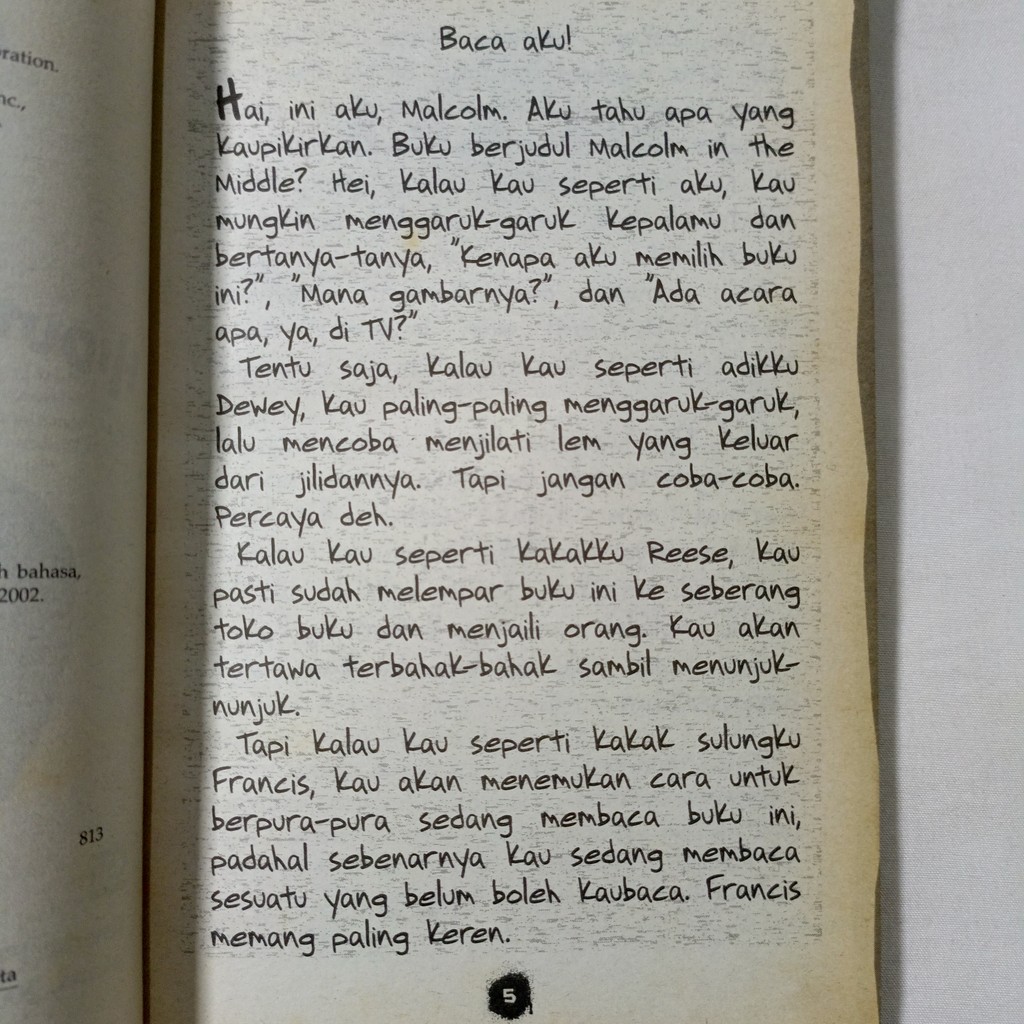 ration.
nc.,
h bahasa,
2002.
813
ta
Baca aku!
Hai, ini aku, Malcolm. Aku tahu apa yang
kaupikirkan. Buku berjudul Malcolm in the
Middle? Hei, kalau kau seperti aku, kau
mungkin menggaruk-garuk kepalamu dan
bertanya-tanya, "Kenapa aku memilih buku
ini?", "Mana gambarnya?", dan "Ada acara
apa, ya, di TV?"
Tentu saja, kalau kau seperti adikku
Dewey, kau paling-paling menggaruk-garuk,
lalu mencoba menjilati lem yang keluar
dari jilidannya. Tapi jangan coba-coba.
Percaya deh.
Kalau kau seperti kakakku Reese, kau
pasti sudah melempar buku ini ke seberang
toko buku dan menjaili orang. Kau akan
tertawa terbahak-bahak sambil menunjuk-
nunjuk.
Tapi kalau kau seperti kakak sulungku
Francis, kau akan menemukan cara untuk
berpura-pura sedang membaca buku ini,
padahal sebenarnya kau sedang membaca
sesuatu yang belum boleh kaubaca. Francis
memang paling keren.
5